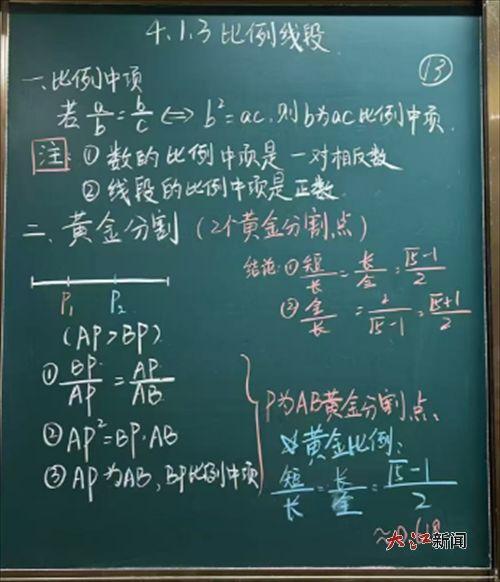 4.1.3 比例线段
13
一.比例中项
若 a/b = b/c ⇔ b²=ac,则b为ac比例中项.
注: ①数的比例中项是一对相反数
②线段的比例中项是正数.
二、黄金分割(2个黄金分割点)
结论: ①短/长 = 长/全 = (√5-1)/2
②全/长 = 2/(√5-1) = (√5+1)/2
P₁ P₂
(AP>BP)
①BP/AP = AP/AB
②AP²=BP·AB
③AP为AB,BP比例中项
P为AB黄金分割点.
黄金比例:
短/长 = 长/全 = (√5-1)/2
≈0.618
大江新闻